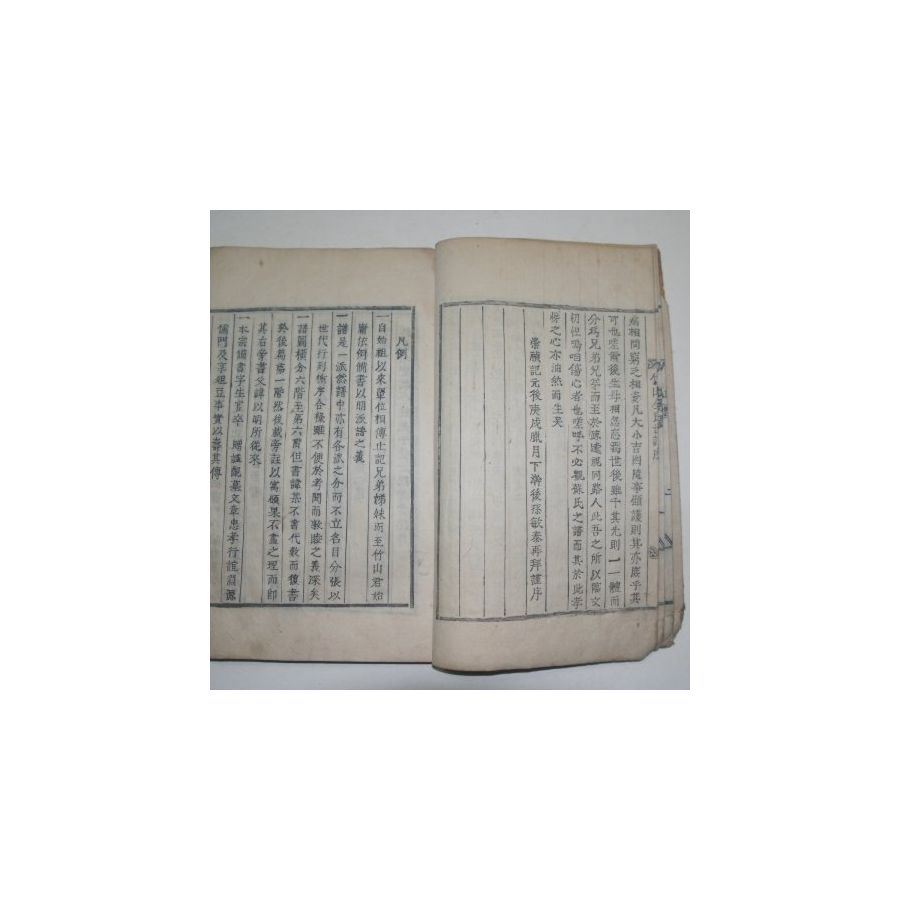 病相問窮之相寄凡大小吉凶隨事顧護則其亦庶乎其
可也嗟爾後生毋相忽忘焉世後雖千其先則一一體而
分爲兄弟兄弟而至於疎遠視同路人此吾之所以臨文
初但嗚咽傷心者也嗟呼不必觀蘇氏之譜而其於此孝
悌之心亦油然而生矣
崇禎記元後庚戌臘月下澣後孫敏泰再拜謹序
凡例
一自始祖以來單位相傳止記兄弟姊妹而至竹山君始
依例備書以明派譜之義
一譜是一派然譜中亦有各派之分而不立名目分張以
世代行列循序合錄雖不便於考閱而敦睦之義深矣
一譜篇橫分六階至第六層但書諱某不書代數而復書
於後篇第一階然後載旁註以寓碩果不盡之理而印
其右旁書父諱以明所從來
一本宗備書字生官卒 贈諡配墓文章忠孝行誼淵源
儒門及享俎豆事實以壽其傳